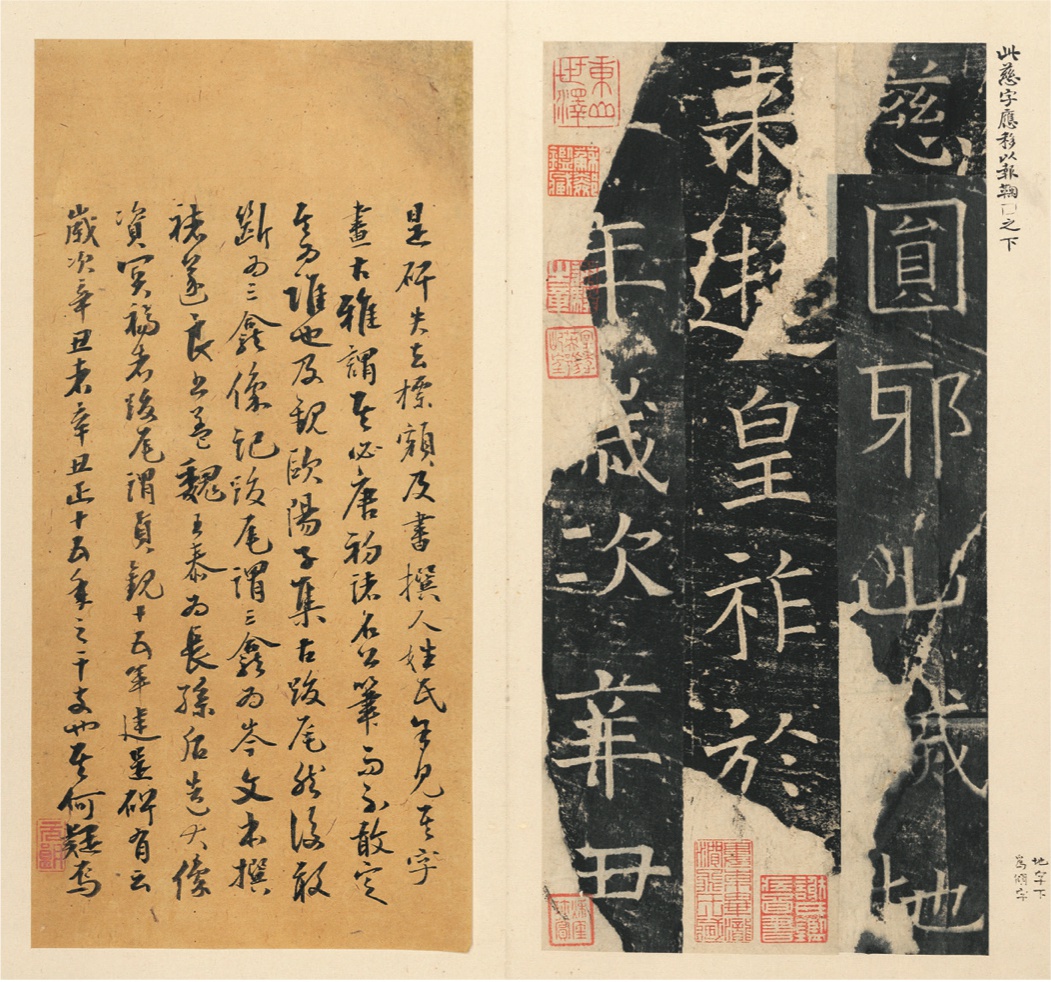 此慈字應移以報鞠之下
慈圓耶此歲地
地字下
來建皇祚於
年歲次辛丑
東山世澤
蘇鄰鑑藏
是碑失去標額及書撰人姓氏余見其字
畫古雅謂其必唐初諸名公筆而不敢定
其为誰也及觀歐陽子集古跋尾然後敢
斷为三龕像記跋尾謂三龕为岑文本撰
褚遂良書蓋魏王泰为長孫后造大像
資冥福者跋尾謂貞觀十五年造是碑有云
歲次辛丑者辛丑正十五年之干支也其何疑焉